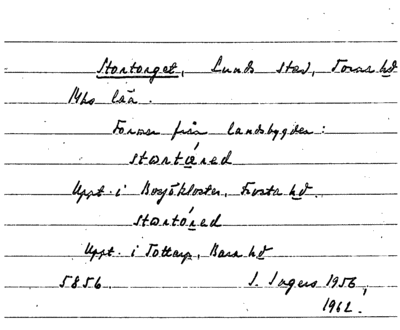 Stortorget, Lunds stad, Torna hd
Mhs län.
Former från landsbygden:
stortáred
Uppt. i Bosjökloster, Frosta hd.
stortóred
Uppt. i Tottarp, Bara hd
5856. I. Ingers 1956,
1962.